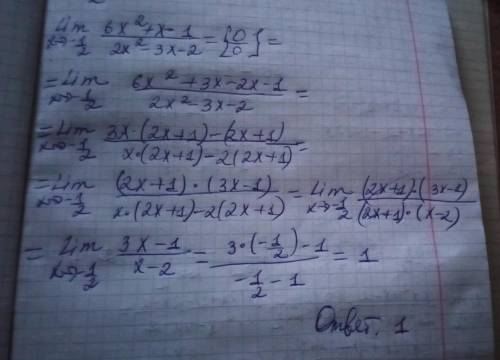 lim x→-1/2 (6x²+x-1)/(2x²-3x-2) = {0/0} =
= lim x→-1/2 (6x²+3x-2x-1)/(2x²-3x-2) =
= lim x→-1/2 (3x·(2x+1)-(2x+1))/(x·(2x+1)-2(2x+1)) =
= lim x→-1/2 ((2x+1)·(3x-1))/(x·(2x+1)-2(2x+1)) = lim x→-1/2 ((2x+1)·(3x-1))/((2x+1)·(x-2))
= lim x→-1/2 (3x-1)/(x-2) = (3·(-1/2)-1)/(-1/2-1) = 1
Ответ. 1